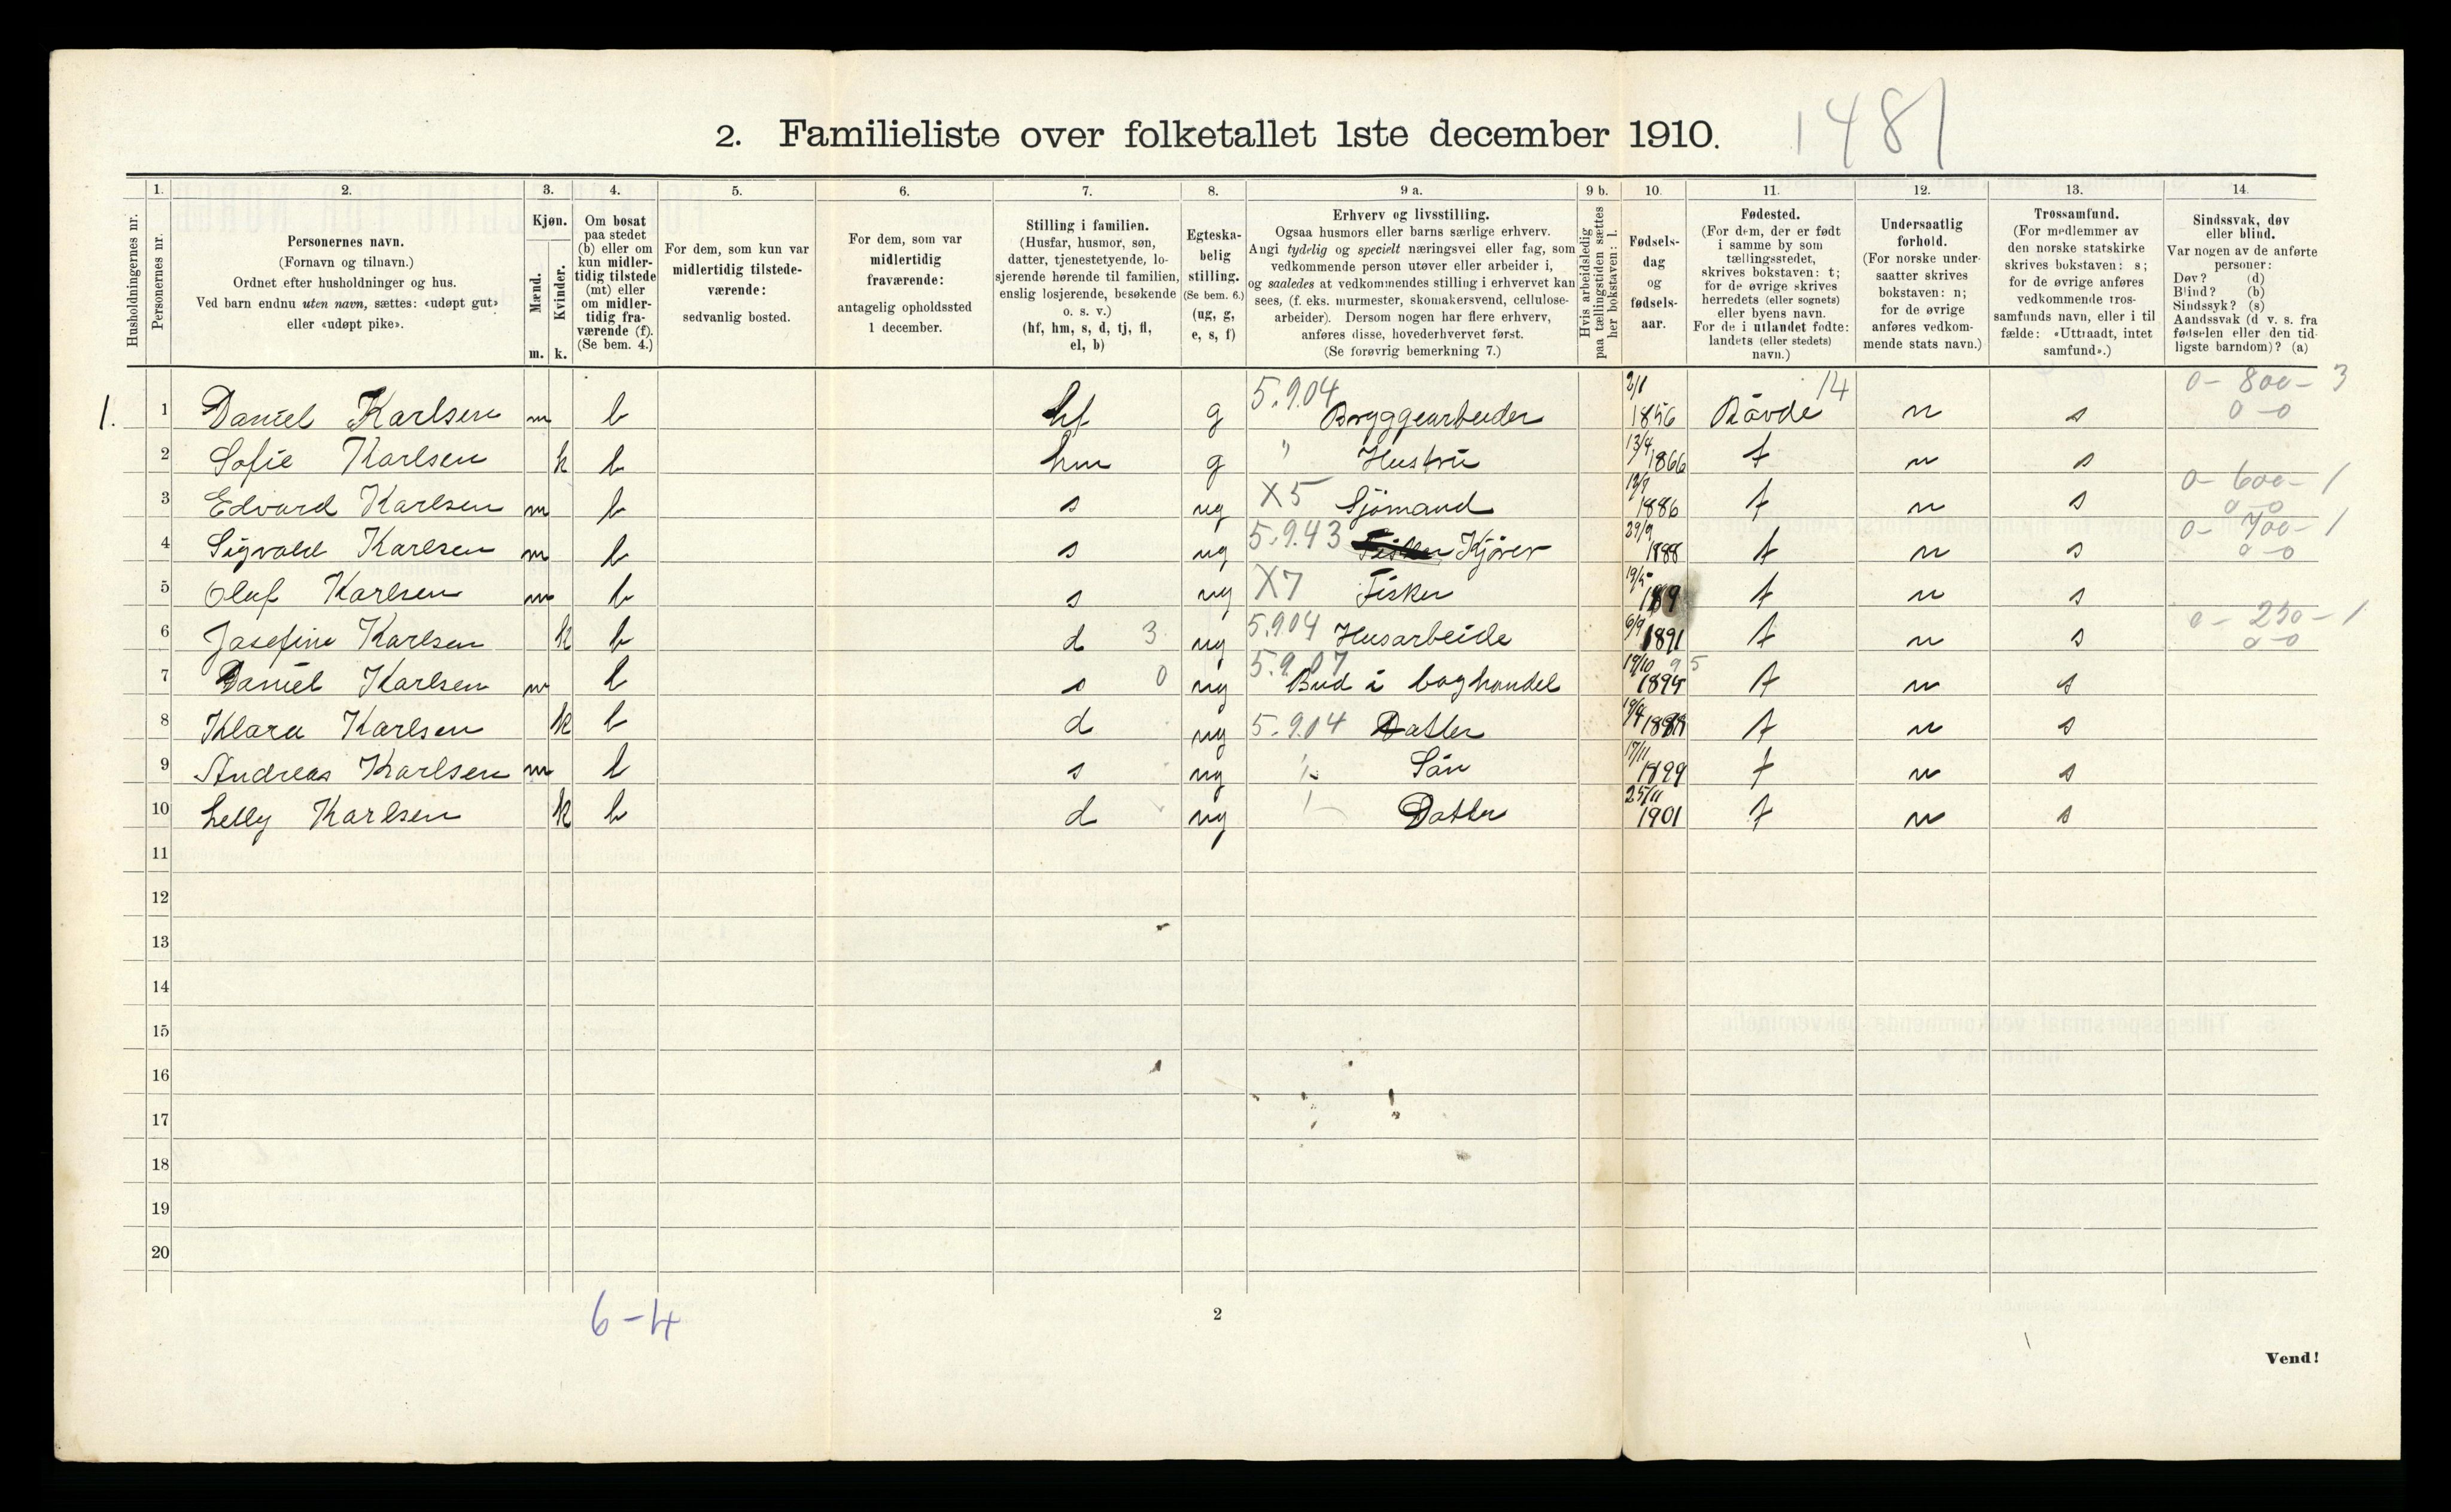 2. Familieliste over folketallet 1ste december 1910. 1481
1. 2. 3. 4. 5. 6. 7. 8. 9 a. 9 b. 10. 11. 12. 13. 14.
Husholdningernes nr.
Personernes nr.
Personernes navn.
(Fornavn og tilnavn.)
Ordnet efter husholdninger og hus.
Ved barn endnu uten navn, sættes: «udøpt gut»
eller «udøpt pike».
Kjøn.
Mænd.
Kvinder.
m. k.
Om bosat
paa stedet
(b) eller om
kun midler-
tidig tilstede
(mt) eller
om midler-
tidig fra-
værende (f).
(Se bem. 4.)
For dem, som kun var
midlertidig tilstede-
værende:
sedvanlig bosted.
For dem, som var
midlertidig
fraværende:
antagelig opholdssted
1 december.
Stilling i familien.
(Husfar, husmor, søn,
datter, tjenestetyende, lo-
sjerende hørende til familien,
enslig losjerende, besøkende
o. s. v.)
(hf, hm, s, d, tj, fl,
el, b)
Egteska-
belig
stilling.
(Se bem. 6.)
(ug, g,
e, s, f)
Erhverv og livsstilling.
Ogsaa husmors eller barns særlige erhverv.
Angi tydelig og specielt næringsvei eller fag, som
vedkommende person utøver eller arbeider i,
og saaledes at vedkommendes stilling i erhvervet kan
sees, (f. eks. murmester, skomakersvend, cellulose-
arbeider). Dersom nogen har flere erhverv,
anføres disse, hovederhvervet først.
(Se forøvrig bemerkning 7.)
Hvis arbeidsledig
paa tællingstiden sættes
her bokstaven: l.
Fødsels-
dag
og
fødsels-
aar.
Fødested.
(For dem, der er født
i samme by som
tællingsstedet,
skrives bokstaven: t;
for de øvrige skrives
herredets (eller sognets)
eller byens navn.
For de i utlandet fødte:
landets (eller stedets)
navn.)
Undersaatlig
forhold.
(For norske under-
saatter skrives
bokstaven: n;
for de øvrige
anføres vedkom-
mende stats navn.)
Trossamfund.
(For medlemmer av
den norske statskirke
skrives bokstaven: s;
for de øvrige anføres
vedkommende tros-
samfunds navn, eller i til
fælde: «Uttraadt, intet
samfund».)
Sindssvak, døv
eller blind.
Var nogen av de anførte
personer:
Døv? (d)
Blind? (b)
Sindssyk? (s)
Aandssvak (d v. s. fra
fødselen eller den tid-
ligste barndom)? (a)
1. 1 Daniel Karlsen m b hf g 5.9.04 Bryggearbeider 2/1 1856 Rövde 14 n s 0-800-3 0-0
2 Sofie Karlsen k b hm g " Hustru 13/4 1866 t n s
3 Edvard Karlsen m b s ug X5 Sjömand 1886 t n s 0-600-1 0-0
4 Sigvald Karlsen m b s ug 5.9.43 Fisker Kjörer 29/9 1888 t n s 0-700-1 0-0
5 Oluf Karlsen m b s ug X7 Fisker 19/5 t n s
6 Josefine Karlsen k b d 3 ug 5.9.04 Husarbeide 6/9 1891 t n s 0-250-1 0-0
7 Daniel Karlsen m b s 0 ug 5.9.07 Bud i boghandel 19/10 1895 95 t n s
8 Klara Karlsen k b d ug 5.9.04 Datter t n s
9 Andreas Karlsen m b s ug Sön 17/11 1899 t n s
10 Lelly Karlsen k b d ug Datter 25/11 1901 t n s
11
12
13
14
15
16
17
18
19
20
6-4
2
Vend!